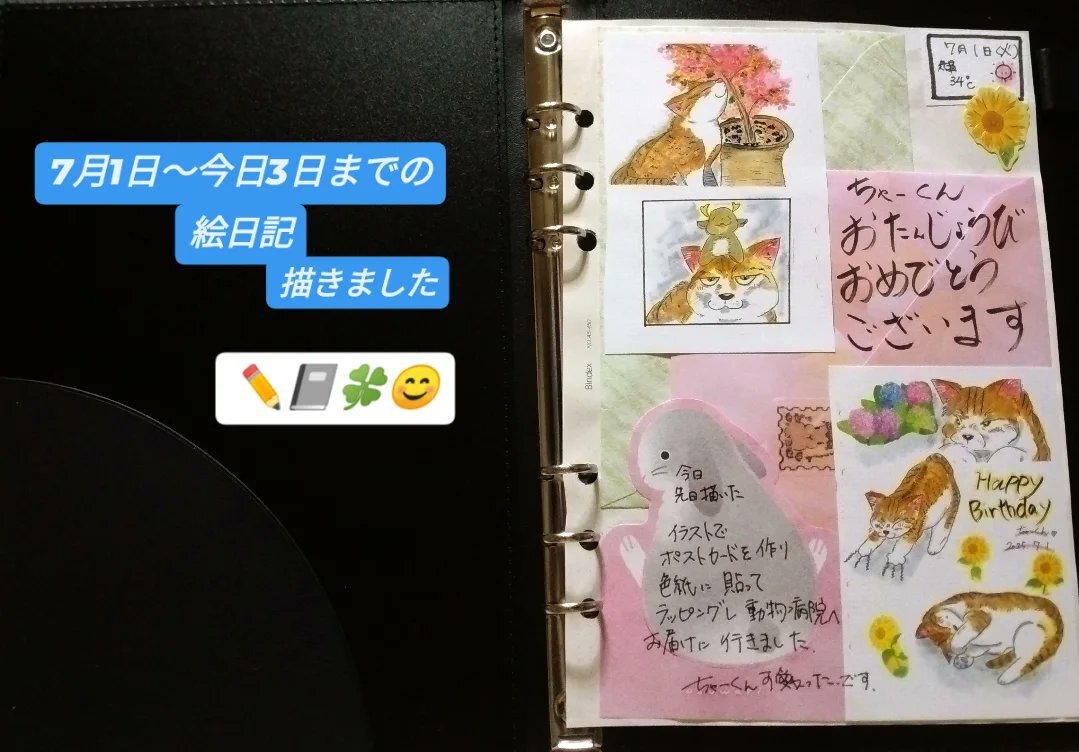 7月1日～今日3日までの
絵日記
描きました
7月1日(火)
34℃
ちゃーくん
おたんじょうび
おめでとう
ございます
Happy
Birthday
今日
先日描いた
イラストで
ポストカードを作り
色紙に貼って
ラッピングし動物病院へ
お届けに行きました
ちゃーくん
です。
Bindex